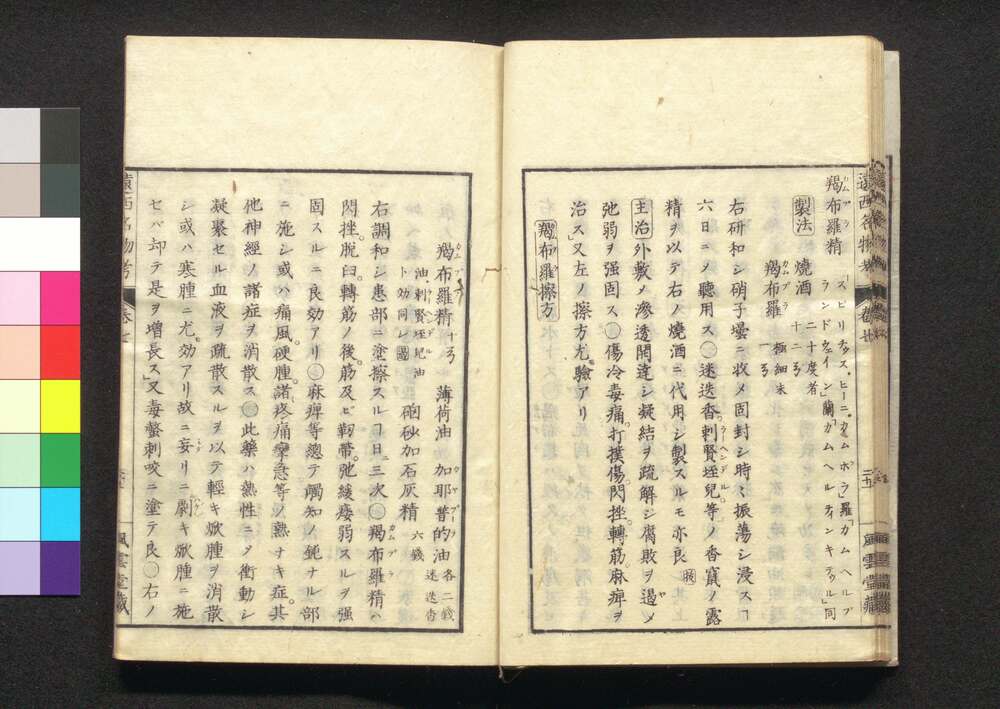 羯布羅精
カムプラ
「スピリチュス・ヒーニ・カムホラ」羅「カムヘルブ
ランドウェイン」蘭「カムヘルチインキテュル」同
製法 燒酒 二十度者 十二ろ
羯布羅 極細末 一ろ
カムプラ
右研和シ硝子壜ニ收メ固封シ時々振蕩シ浸スヿ
六日ニメ聽用ス○迷迭香剌賢垤兒等ノ香竄ノ露
ラーヘンデル
精ヲ以テ右ノ燒酒ニ代用シ製スルモ亦良
主治 外敷メ滲透開達シ凝結ヲ疏解シ腐敗ヲ遏メ
弛弱ヲ强固ス○傷冷毒痛打撲傷閃挫轉筋麻痺ヲ
治ス又左ノ擦方尤驗アリ
羯布羅擦方
カムプラ
羯布羅精 十ろ 薄荷油 加耶普的油 各二錢
迷迭香
油剌賢垤兒油
ト効同レ
𥓓砂加石灰精 六錢
右調和シ患部ニ塗擦スルヿ日三次○羯布羅精ハ
カムプラ
閃挫脫臼轉筋ノ後筋及ビ韌帶弛緩痿弱スルヲ强
固スルニ良効アリ○麻痺等總テ觸知ノ鈍ナル部
ニ施シ或ハ痛風硬腫諸疼痛攣急等ノ熱ナキ症其
他神經ノ諸症ヲ消散ス○此藥ハ熱性ニメ衝動シ
凝聚セル血液ヲ疏散スルヲ以テ輕キ焮腫ヲ消散
シ或ハ寒腫ニ尤効アリ故ニ妄リニ劇キ焮腫ニ施
セバ却テ是ヲ增長ス又毒螫刺咬ニ塗テ良○右ノ
遠西名物考
卷七
風雲堂藏